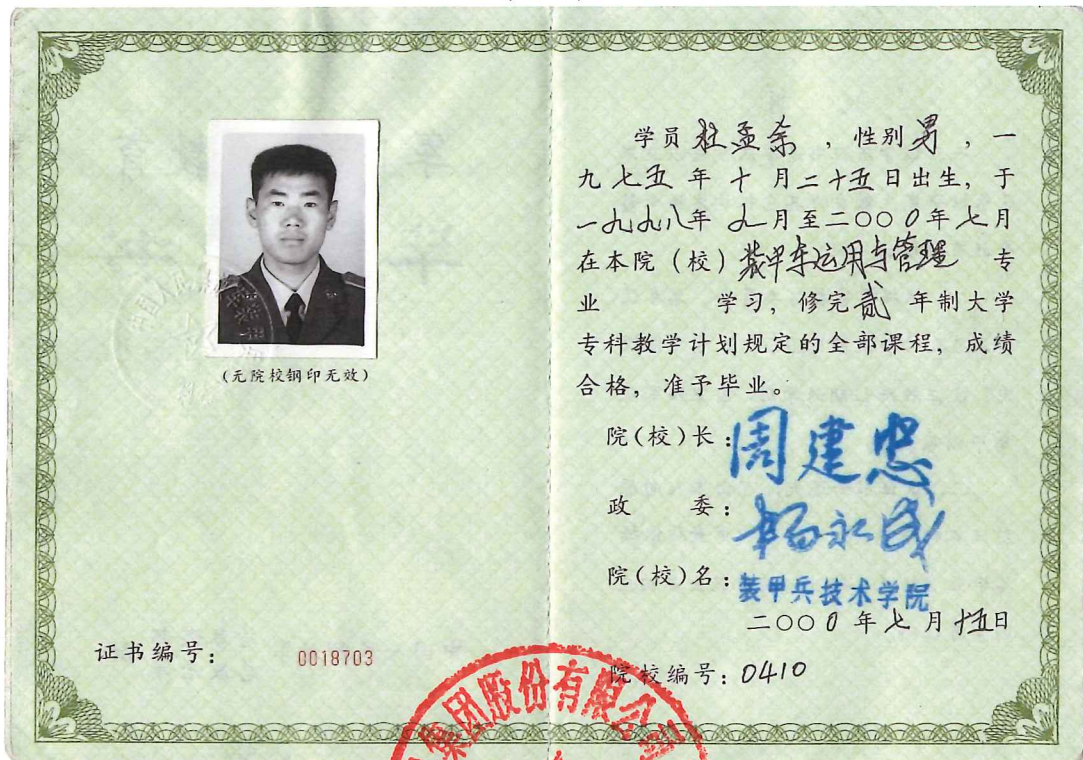 (无院校钢印无效)
证书编号： 0018703
学员杜孟余，性别男，一
九七五年十月二十五日出生，于
一九九八年九月至二〇〇0年七月
在本院（校）装甲车运用与管理 专
业 学习，修完贰 年制大学
专科教学计划规定的全部课程，成绩
合格，准予毕业。
院(校)长：周建忠
政 委：杨永成
院(校)名：装甲兵技术学院
二〇〇0年七月十五日
院校编号：0410
集团股份有限公司